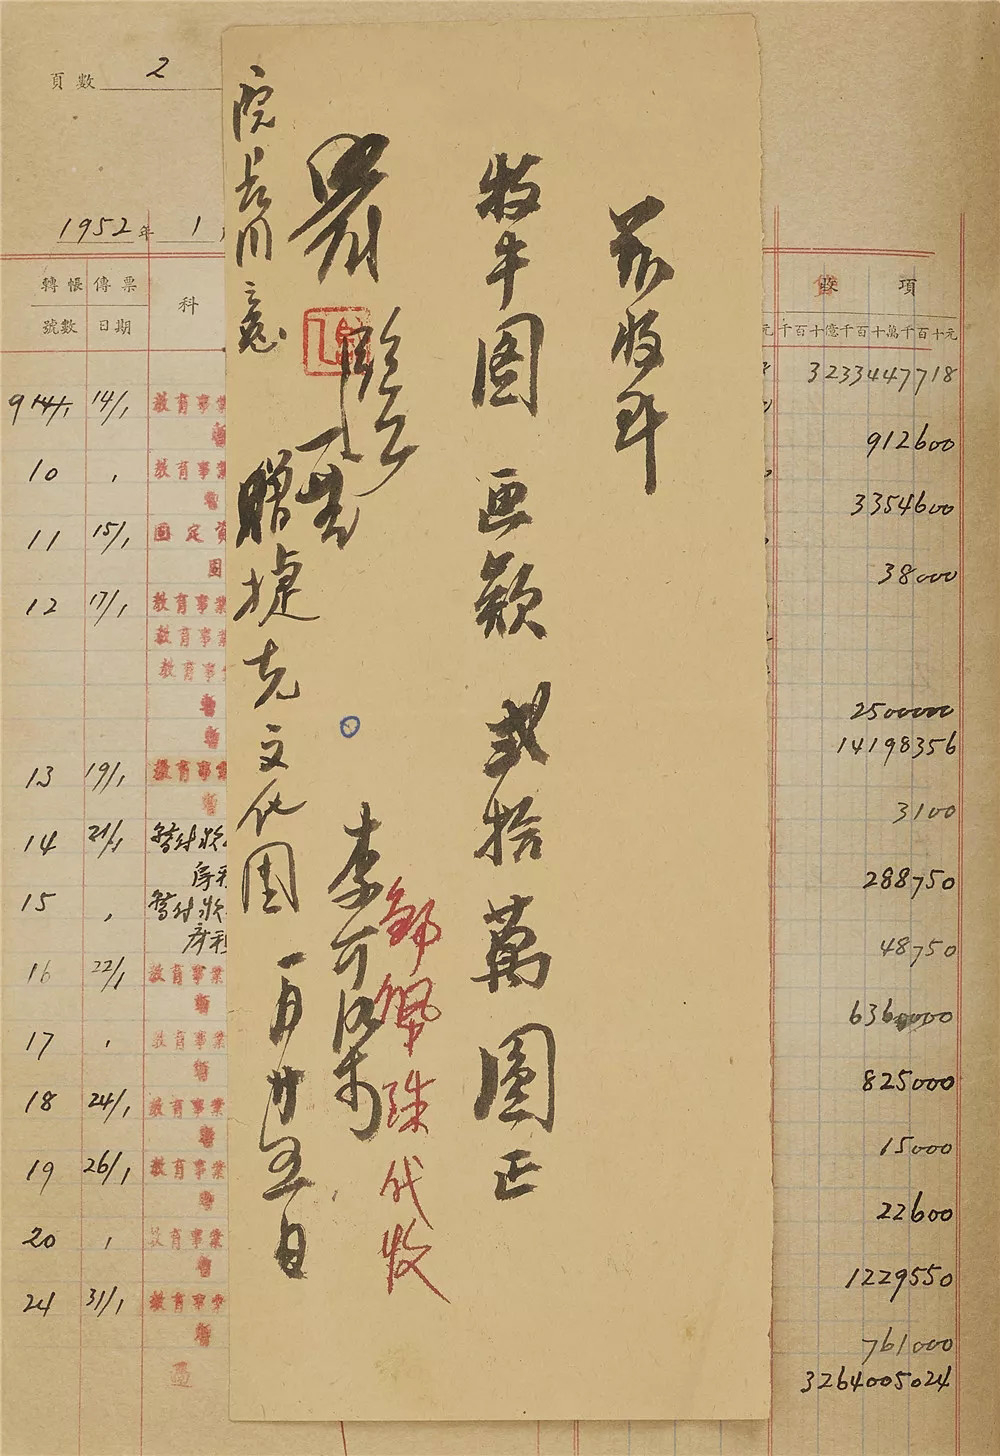 茲收到
牧牛圖 画款 弍拾萬圓正
李可染
鄒佩珠代收
院長同意
贈捷克文化團
一月廿五日
頁數 2
1952年 1
轉帳 傳票
號數 日期
科
收項
千百十億千百十萬千百十元
3233447718
914/1 14/1 教育事業
912600
10 教育事業
3354600
11 15/1 固定資
38000
12 17/1 教育事業
教育事業
教育事
2500000
14198356
13 19/1 教育事業
3100
14 21/1 暫付款
288750
15 暫付款
48750
16 22/1 教育事業
6360000
17 教育事業
825000
18 24/1 教育事業
15000
19 26/1 教育事業
22600
20 教育事業
1229550
24 31/1 教育事業
761000
3264005024